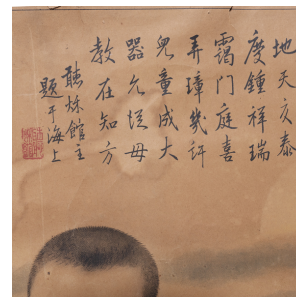 地天交泰
慶鍾祥瑞
靄門庭喜
弄璋幾許
兒童成大
器允從毋
教在知方
聽烁館主
題于海上